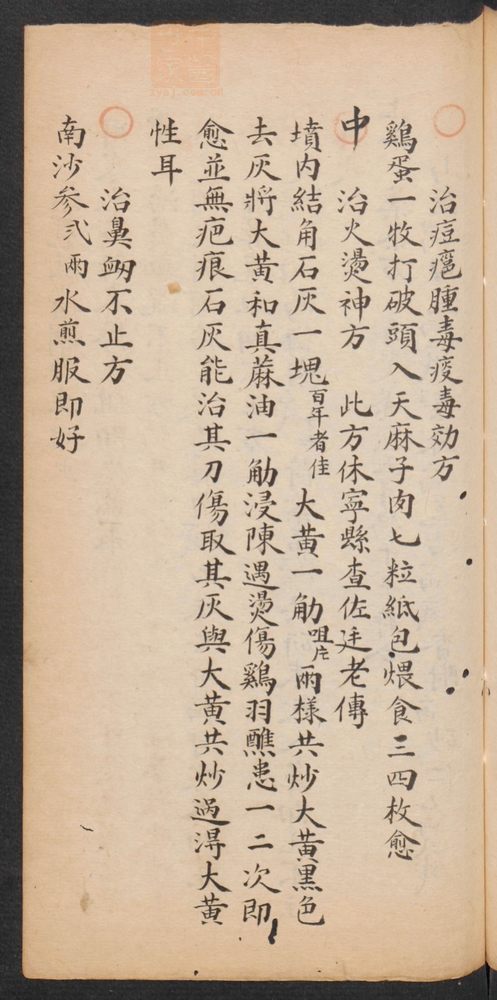 治痘䕃腫毒疫毒効方
鷄蛋一牧打破頭入天麻子肉七粒紙包煨食三四枚愈
中 治火燙神方 此方休寧縣查佐廷老傳
墳内結角石灰一塊百年者佳 大黄一觔咀片 兩樣共炒大黄黒色
去灰將大黄和真蔴油一觔浸陳遇燙傷鷄羽醮患一二次即
愈並無疤痕石灰能治其刀傷取其灰與大黄共炒過淂大黄
性耳
治鼻衂不止方
南沙参弍兩水煎服即好